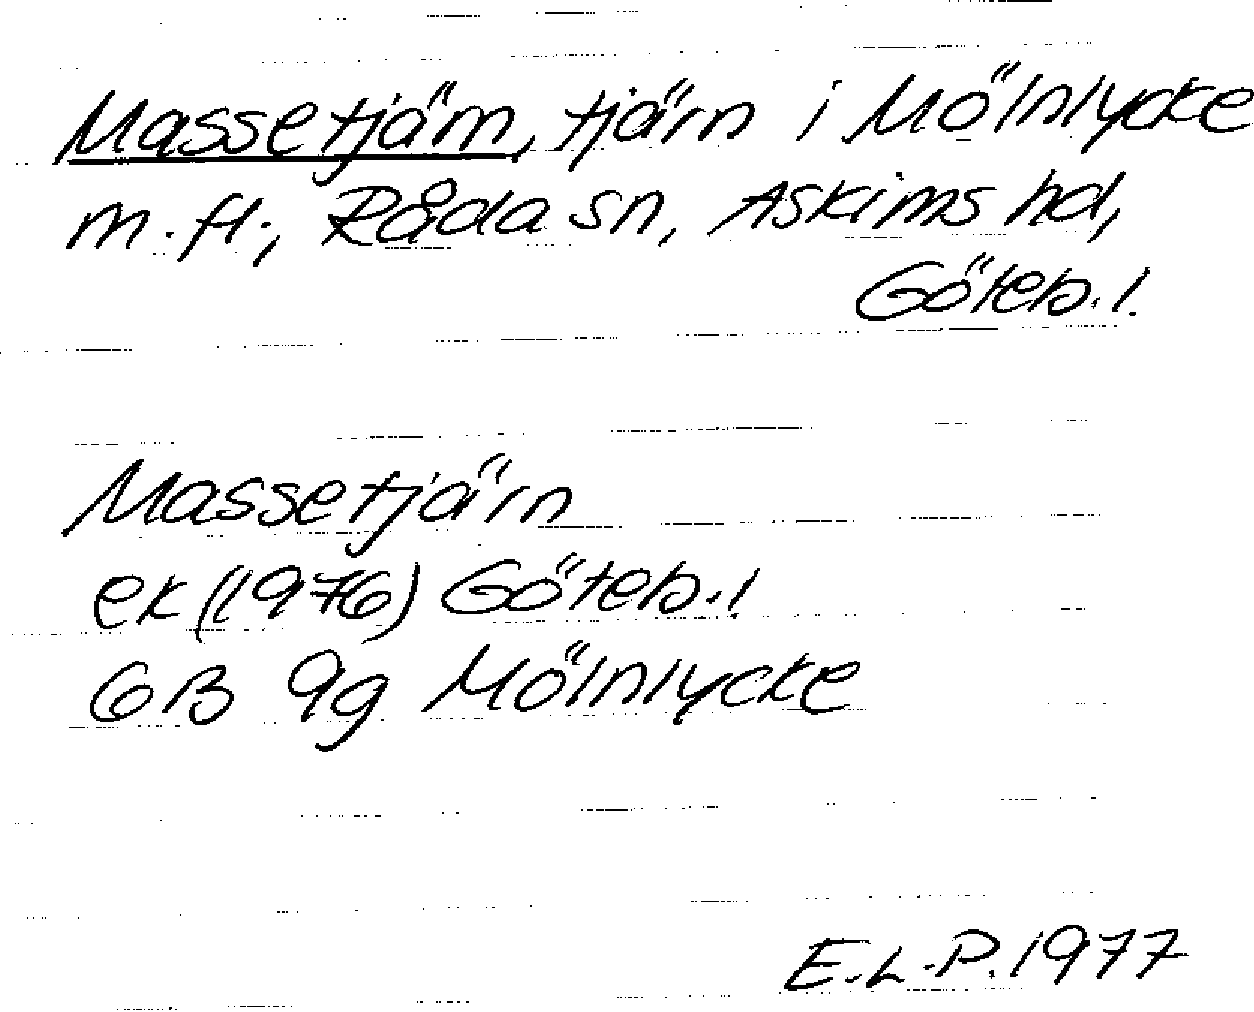 Massetjärn, tjärn i Mölnlycke
m. fl., Råda sn, Askims hd,
Göteb. l.
Massetjärn
ek (1976) Göteb. l
6B 9g Mölnlycke
E.L.P. 1977